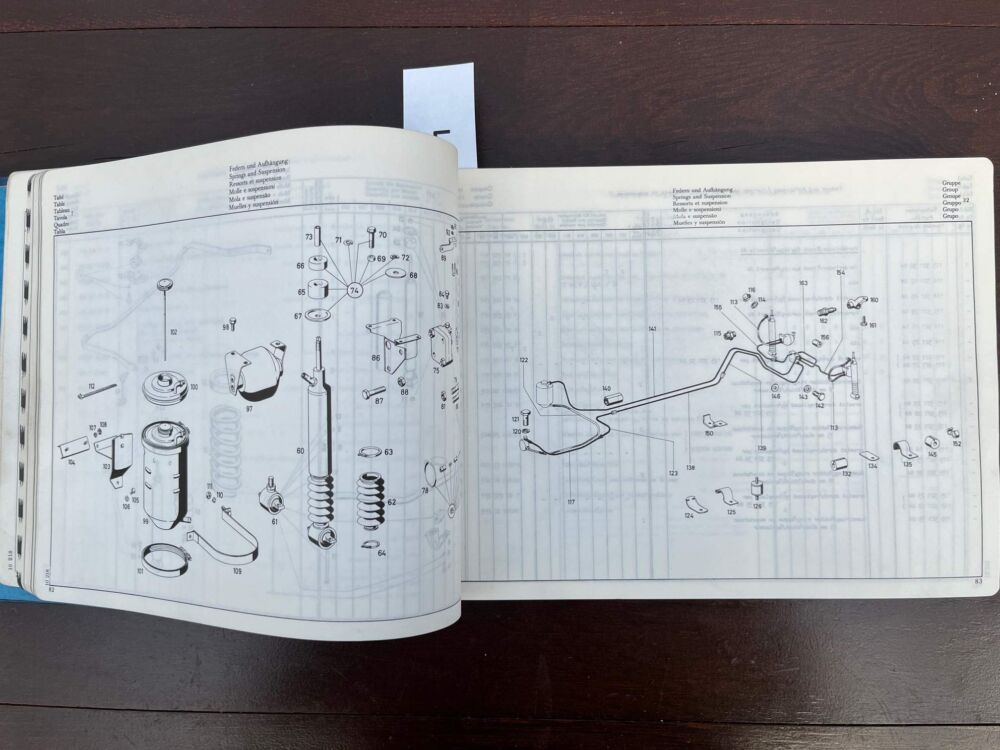 Tabl
Table
Tableau
Tavola
Quadro
Tabla
Federn und Aufhängung
Springs and Suspension
Ressorts et suspension
Molle e sospensioni
Mola e suspensão
Muelles y suspensión
73
71
70
66
69
72
68
74
65
67
89
84
83
102
98
86
75
112
100
97
87
88
81
107
108
104
103
60
63
78
111
110
105
106
99
61
62
64
101
109
10 218
82
Federn und Aufhängung
Springs and Suspension
Ressorts et suspension
Molle e sospensioni
Mola e suspensão
Muelles y suspensión
Gruppe
Group
Groupe
Gruppo 32
Grupo
Grupo
116
113
114
155
163
154
160
162
161
115
141
156
122
140
146
143
142
121
120
150
113
139
152
145
135
134
132
138
123
117
124
125
126
83